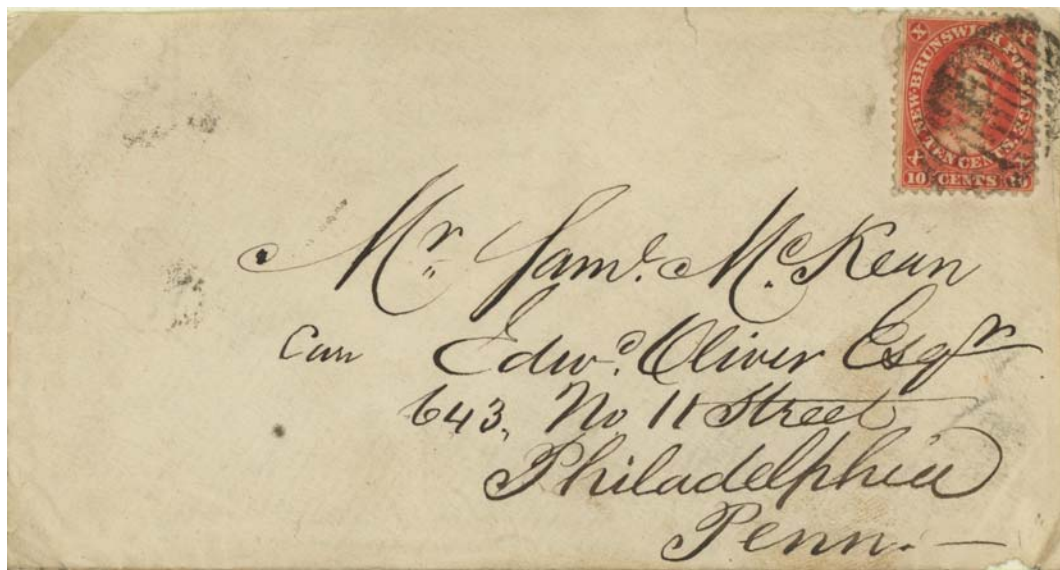 X X
NEW BRUNSWICK POSTAGE
TEN CENTS
X X
10 CENTS 10
Mr. Saml. McKean
Care Edwd. Oliver Esqr
643, No 11 Street
Philadelphia
Penn. —